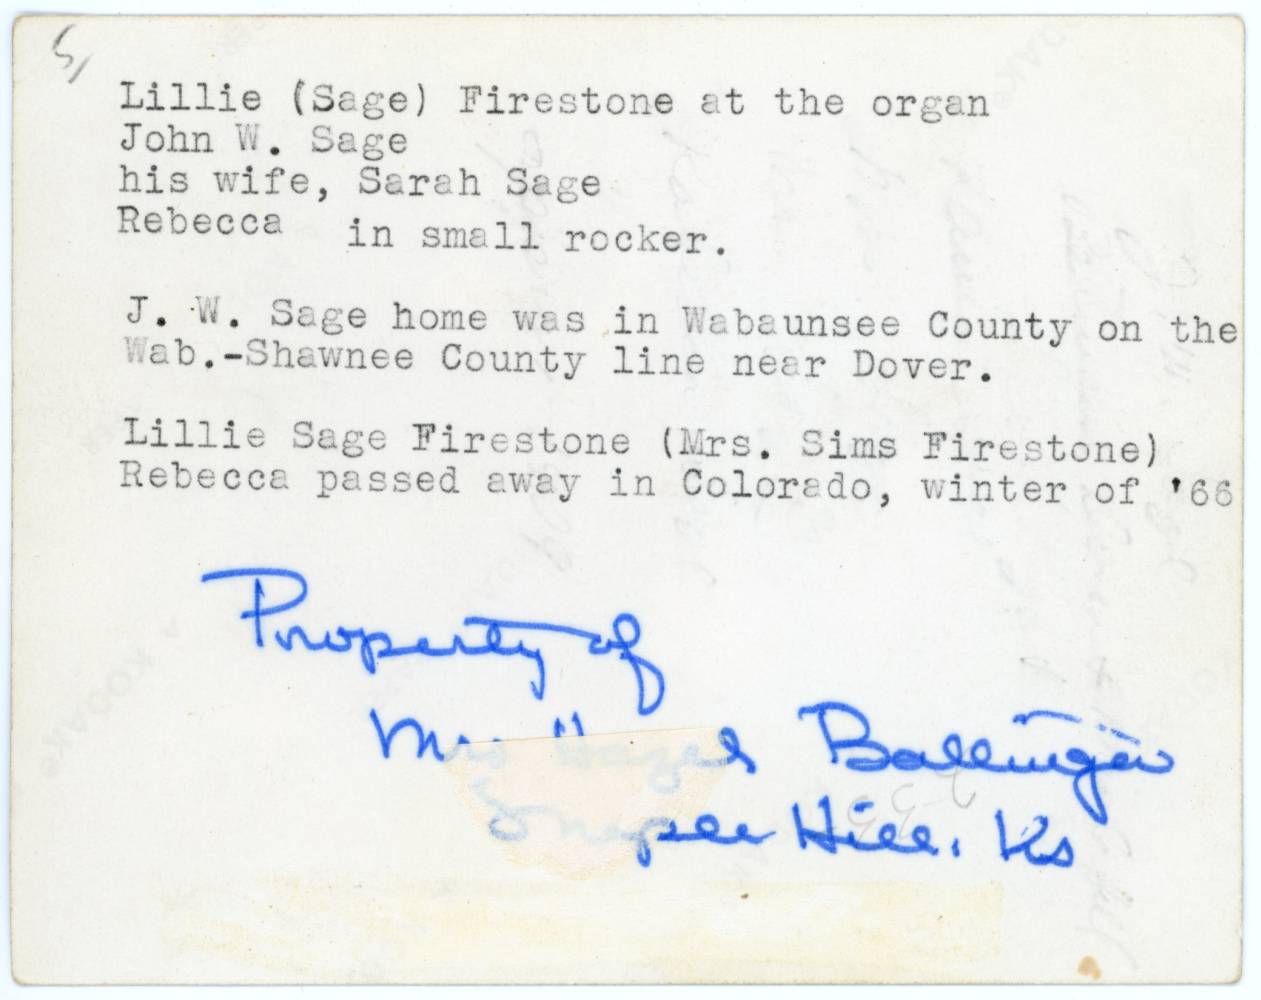 5/
Lillie (Sage) Firestone at the organ
John W. Sage
his wife, Sarah Sage
Rebecca in small rocker.
J. W. Sage home was in Wabaunsee County on the
Wab.-Shawnee County line near Dover.
Lillie Sage Firestone (Mrs. Sims Firestone)
Rebecca passed away in Colorado, winter of '66
Property of
Mrs Hazel Ballinger
Hill, Ks
KODAK